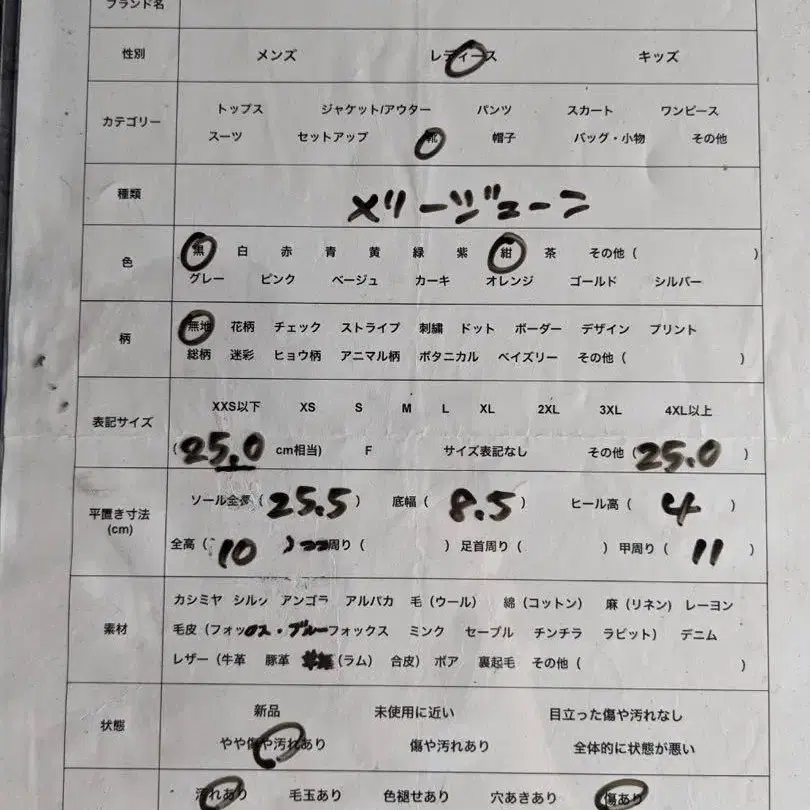 ブランド名
性別 メンズ レディース キッズ
カテゴリー
トップス ジャケット/アウター パンツ スカート ワンピース
スーツ セットアップ 靴 帽子 バッグ・小物 その他
種類 メリージューン
色
黒 白 赤 青 黄 緑 紫 紺 茶 その他 ( )
グレー ピンク ベージュ カーキ オレンジ ゴールド シルバー
柄
無地 花柄 チェック ストライプ 刺繍 ドット ボーダー デザイン プリント
総柄 迷彩 ヒョウ柄 アニマル柄 ボタニカル ペイズリー その他 ( )
表記サイズ
XXS以下 XS S M L XL 2XL 3XL 4XL以上
( 25.0 cm相当) F サイズ表記なし その他 ( 25.0 )
平置き寸法
(cm)
ソール全長 ( 25.5 ) 底幅 ( 8.5 ) ヒール高 ( 4 )
全高 ( 10 ) 周り ( ) 足首周り ( ) 甲周り ( 11 )
素材
カシミヤ シルク アンゴラ アルパカ 毛 (ウール) 綿 (コットン) 麻 (リネン) レーヨン
毛皮 (フォックス・ブルーフォックス ミンク セーブル チンチラ ラビット) デニム
レザー (牛革 豚革 (ラム) 合皮) ボア 裏起毛 その他 ( )
状態
新品 未使用に近い 目立った傷や汚れなし
やや傷や汚れあり 傷や汚れあり 全体的に状態が悪い
汚れあり 毛玉あり 色褪せあり 穴あきあり 傷あり